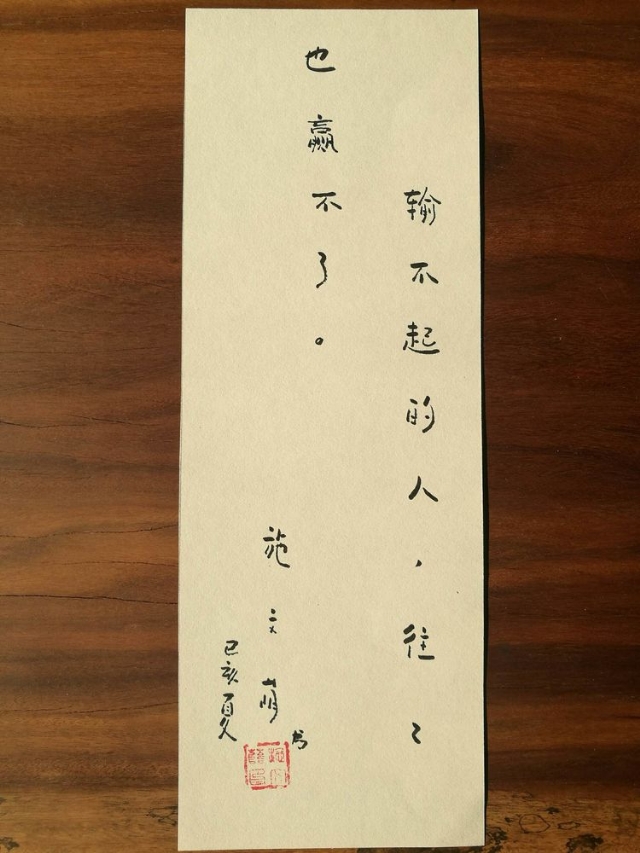 输不起的人，往〻
也赢不了。
施文萌书
己亥夏